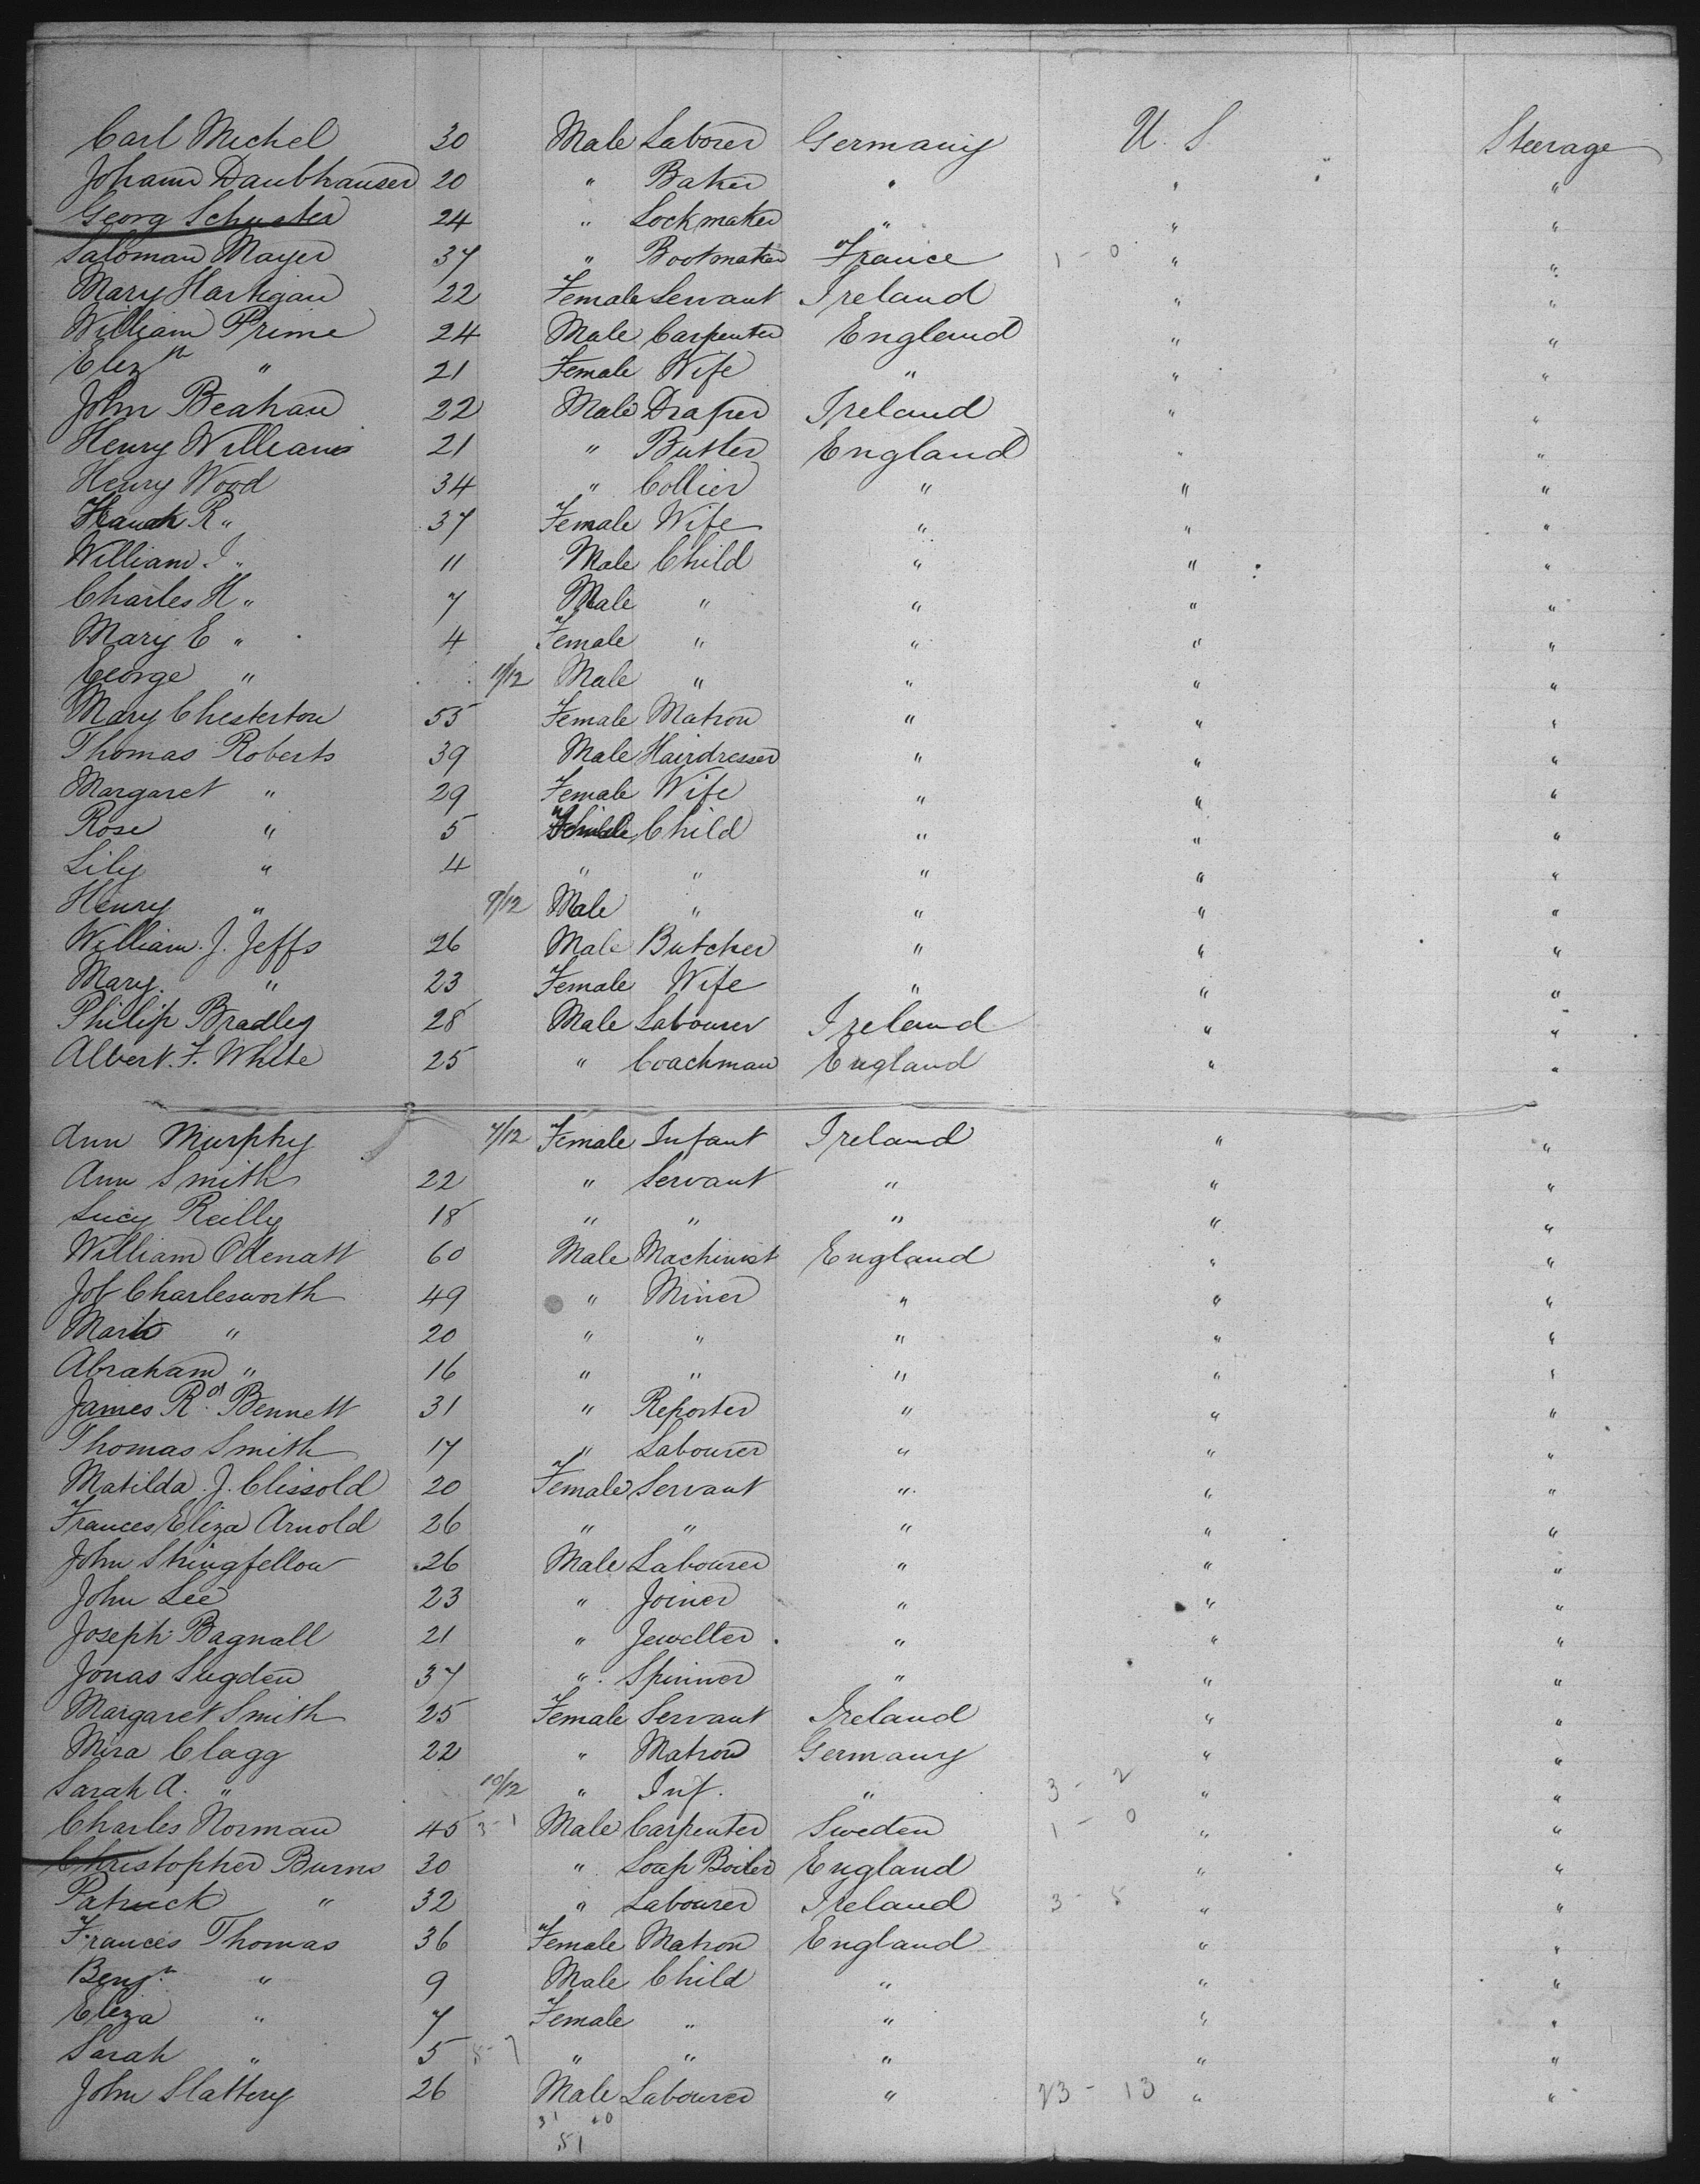 Carl Michel 30 Male Laborer Germany U. S. Steerage
Johann Daubhauser 20 " Baker " " "
Georg Schuster 24 " Lockmaker " " "
Saloman Mayer 37 " Bootmaker France 1 - 0 " "
Mary Hartigan 22 Female Servant Ireland " "
William Prime 24 Male Carpenter England " "
Elizth " 21 Female Wife " " "
John Beahan 22 Male Draper Ireland " "
Henry Williams 21 " Butler England " "
Henry Wood 34 " Collier " " "
R " 37 Female Wife " " "
William J " 11 Male Child " " "
Charles H " 7 Male " " " "
Mary E " 4 Female " " " "
George " 11/12 Male " " " "
Mary Chesterton 55 Female Matron " " "
Thomas Roberts 39 Male Hairdresser " " "
Margaret " 29 Female Wife " " "
Rose " 5 Female Child " " "
Lily " 4 " " " " "
Henry " 9/12 Male " " " "
William. J. Jeffs 26 Male Butcher " " "
Mary. " 23 Female Wife " " "
Philip Bradley 28 Male Labourer Ireland " "
Albert. F. White 25 " Coachman England " "
Ann Murphy 7/12 Female Infant Ireland " "
Ann Smith 22 " Servant " " "
Lucy Reilly 18 " " " " "
William Odenatt 60 Male Machinist England " "
Job Charlesworth 49 " Miner " " "
Mark " 20 " " " " "
Abraham " 16 " " " " "
James Rd. Bennett 31 " Reporter " " "
Thomas Smith 17 " Labourer " " "
Matilda. J. Clissold 20 Female Servant " " "
Frances Eliza Arnold 26 " " " " "
John Stringfellow 26 Male Labourer " " "
John Lee 23 " Joiner " " "
Joseph Bagnall 21 " Jeweller " " "
Jonas Sugden 37 " Spinner " " "
Margaret Smith 25 Female Servant Ireland " "
Mira Clagg 22 " Matron Germany " "
Sarah A. " 10/12 " Inf. " 3 - 2 " "
Charles Norman 45 3-1 Male Carpenter Sweden 1 - 0 " "
Christopher Burns 30 " Soap Boiler England " "
Patrick " 32 " Labourer Ireland 3 - 5 " "
Frances Thomas 36 Female Matron England " "
Benjn " 9 Male Child " " "
Eliza " 7 Female " " " "
Sarah " 5 5-7 " " " " "
John Slattery 26 Male Labourer " 23 - 13 " "
31 20
51